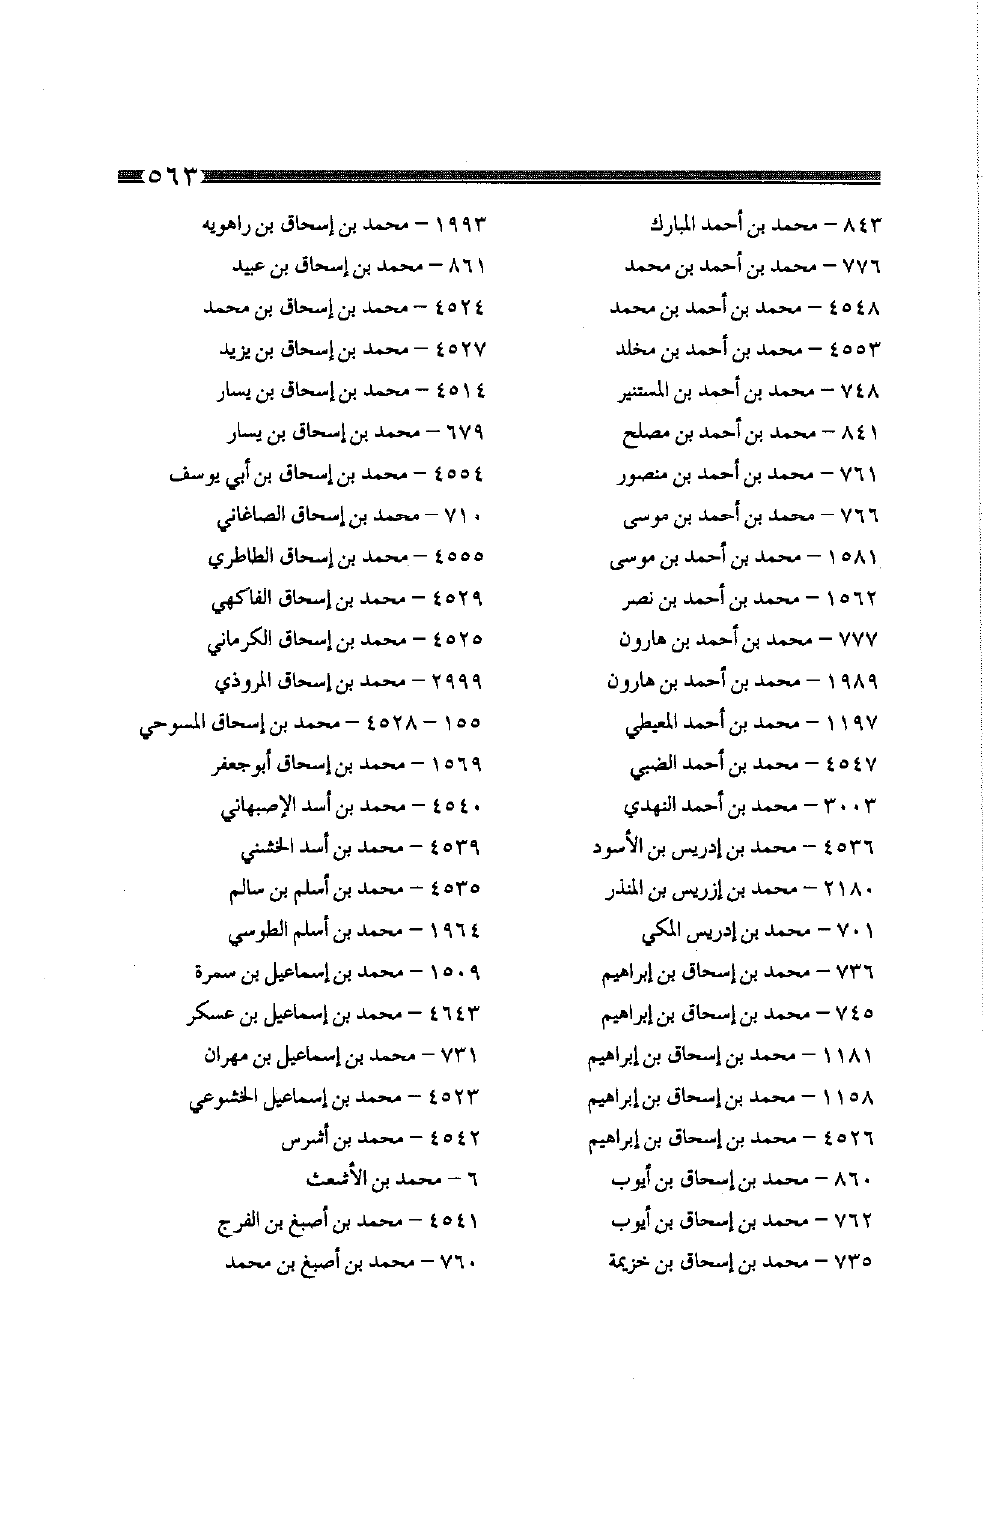 ٥٦٣
٨٤٣ – محمد بن أحمد المبارك
٧٧٦ – محمد بن أحمد بن محمد
٤٥٤٨ – محمد بن أحمد بن محمد
٤٥٥٣ – محمد بن أحمد بن مخلد
٧٤٨ – محمد بن أحمد بن المستنير
٨٤١ – محمد بن أحمد بن مصلح
٧٦١ – محمد بن أحمد بن منصور
٧٦٦ – محمد بن أحمد بن موسى
١٥٨١ – محمد بن أحمد بن موسى
١٥٦٢ – محمد بن أحمد بن نصر
٧٧٧ – محمد بن أحمد بن هارون
١٩٨٩ – محمد بن أحمد بن هارون
١١٩٧ – محمد بن أحمد المعيطي
٤٥٤٧ – محمد بن أحمد الضبي
٣٠٠٣ – محمد بن أحمد النهدي
٤٥٣٦ – محمد بن إدريس بن الأسود
٢١٨٠ – محمد بن إزريس بن المنذر
٧٠١ – محمد بن إدريس المكي
٧٣٦ – محمد بن إسحاق بن إبراهيم
٧٤٥ – محمد بن إسحاق بن إبراهيم
١١٨١ – محمد بن إسحاق بن إبراهيم
١١٥٨ – محمد بن إسحاق بن إبراهيم
٤٥٢٦ – محمد بن إسحاق بن إبراهيم
٨٦٠ – محمد بن إسحاق بن أيوب
٧٦٢ – محمد بن إسحاق بن أيوب
٧٣٥ – محمد بن إسحاق بن خزيمة
١٩٩٣ – محمد بن إسحاق بن راهويه
٨٦١ – محمد بن إسحاق بن عبيد
٤٥٢٤ – محمد بن إسحاق بن محمد
٤٥٢٧ – محمد بن إسحاق بن يزيد
٤٥١٤ – محمد بن إسحاق بن يسار
٦٧٩ – محمد بن إسحاق بن يسار
٤٥٥٤ – محمد بن إسحاق بن أبي يوسف
٧١٠ – محمد بن إسحاق الصاغاني
٤٥٥٥ – محمد بن إسحاق الطاطري
٤٥٢٩ – محمد بن إسحاق الفاكهي
٤٥٢٥ – محمد بن إسحاق الكرماني
٢٩٩٩ – محمد بن إسحاق المروذي
١٥٥ – ٤٥٢٨ – محمد بن إسحاق المسوحي
١٥٦٩ – محمد بن إسحاق أبوجعفر
٤٥٤٠ – محمد بن أسد الإصبهاني
٤٥٣٩ – محمد بن أسد الخشني
٤٥٣٥ – محمد بن أسلم بن سالم
١٩٦٤ – محمد بن أسلم الطوسي
١٥٠٩ – محمد بن إسماعيل بن سمرة
٤٦٤٣ – محمد بن إسماعيل بن عسكر
٧٣١ – محمد بن إسماعيل بن مهران
٤٥٢٣ – محمد بن إسماعيل الخشوعي
٤٥٤٢ – محمد بن أشرس
٦ – محمد بن الأشعث
٤٥٤١ – محمد بن أصبغ بن الفرج
٧٦٠ – محمد بن أصبغ بن محمد